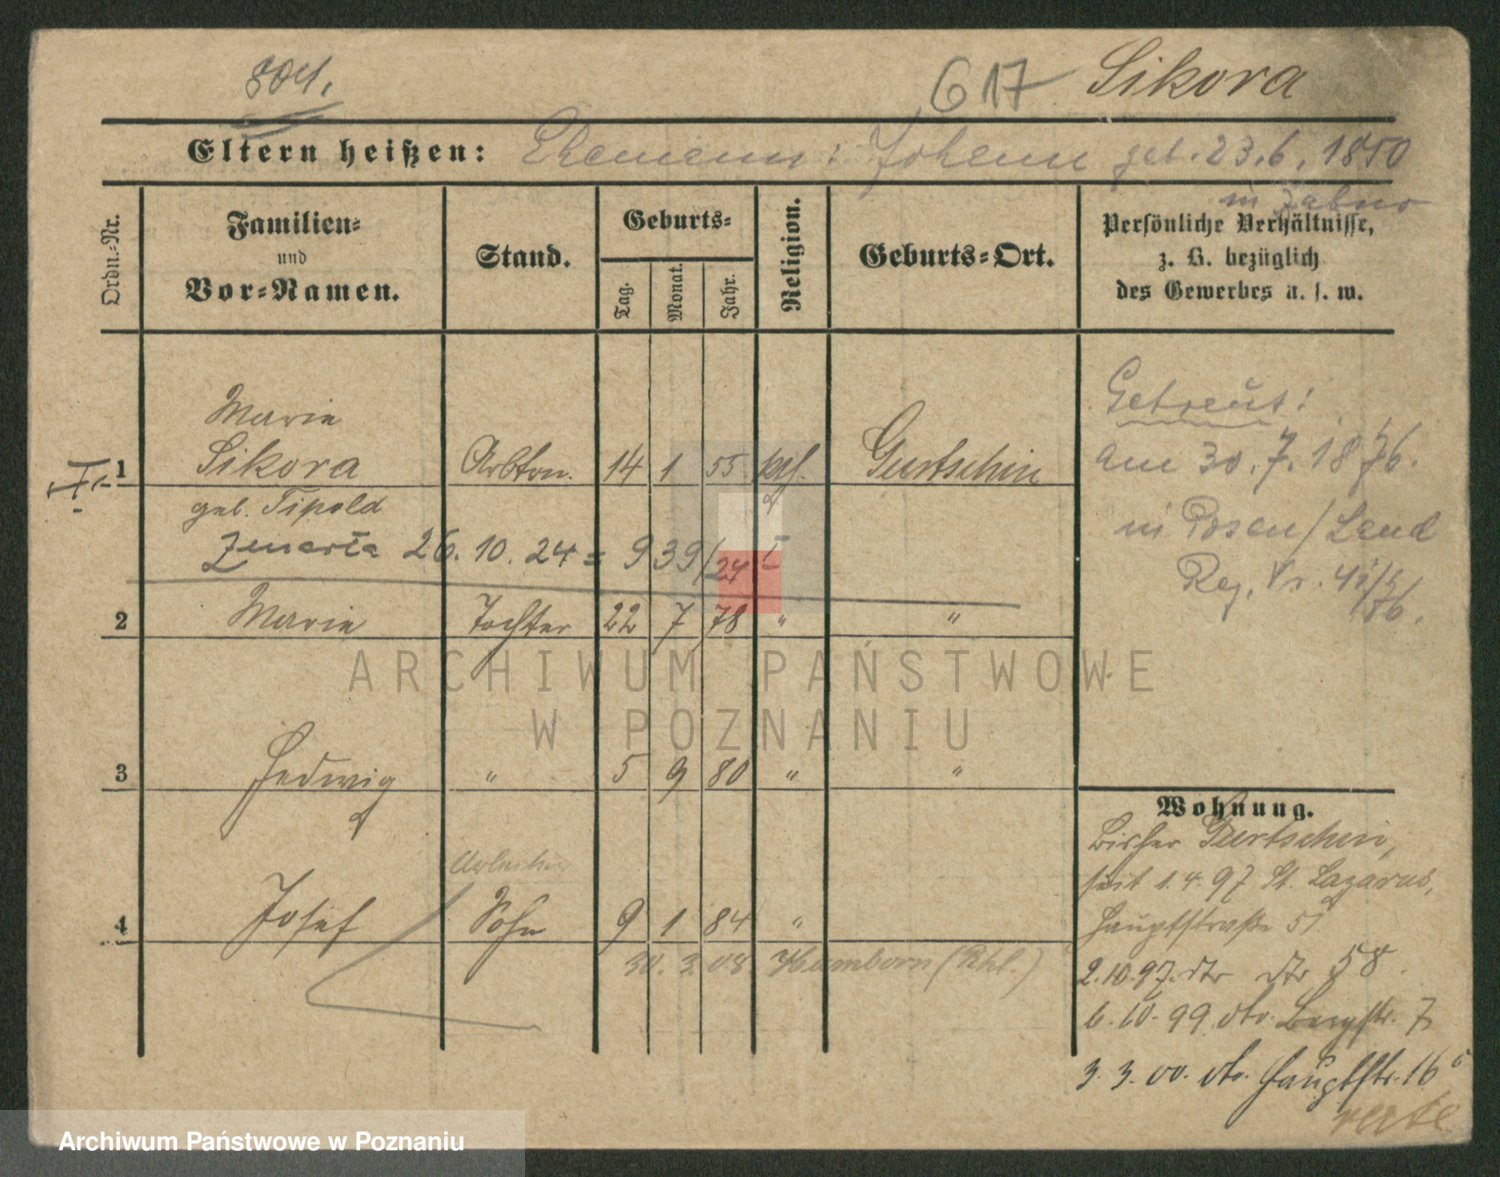 804.
617 Sikora
Eltern heißen: Ehemann: Johann geb. 23.6.1850
in Zabno
Ordn.-Nr.
Familien-
und
Vor-Namen.
Stand.
Geburts-
Tag.
Monat.
Jahr.
Religion.
Geburts-Ort.
Persönliche Verhältnisse,
z. B. bezüglich
des Gewerbes u. s. w.
Marie
I. 1 Sikora Arbtrn. 14 1 55 kth. Gurtschin
geb. Tipold
Zmarła 26.10.24 = 939/24 I
2 Marie Tochter 22 7 78 " "
3 Hedwig " 5 9 80 " "
Arbeiter
4 Josef Sohn 9 1 84 "
30.3.08 Hamborn (Rhl.)
Getraut:
am 30.7.1876.
in Posen/Land
Reg. Nr.
Wohnung.
Bisher Gurtschin,
seit 1.4.97 St. Lazarus,
Hauptstraße 51
2.10.97. dto dto 58.
6.10.99 dto. Bergstr. 7
3.3.00. dto. Hauptstr. 16
verte
ARCHIWUM PAŃSTWOWE
W POZNANIU
Archiwum Państwowe w Poznaniu